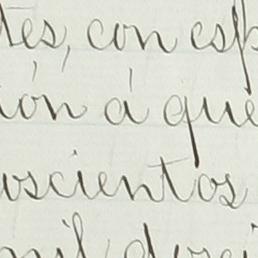 tes, con esp
ión á que
uscientos
mil